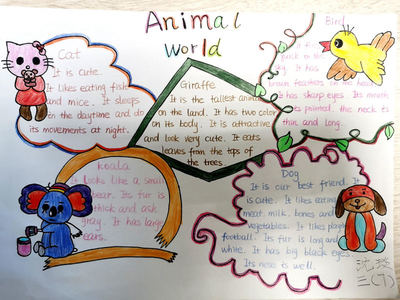 Animal
World
Cat
It is cute.
It likes eating fish
and mice. It sleeps
in the daytime and do
its movements at night.
Giraffe
It is the tallest animal
on the land. It has two color
on its body. It is attractive
and look very cute. It eats
leaves from the tops of
the trees.
Bird
It has
brown feathers
It has sharp eyes. Its mouth
is pointed. the neck is
thin and long.
Koala
It looks like a small
bear. Its fur is
thick and ash
gray. It has large
ears.
Dog
It is our best friend. It
is cute. It likes eating
meat. milk. bones and
vegetables. It likes playing
football. Its fur is long and
white. It has big black eyes.
Its nose is well.
三(7)